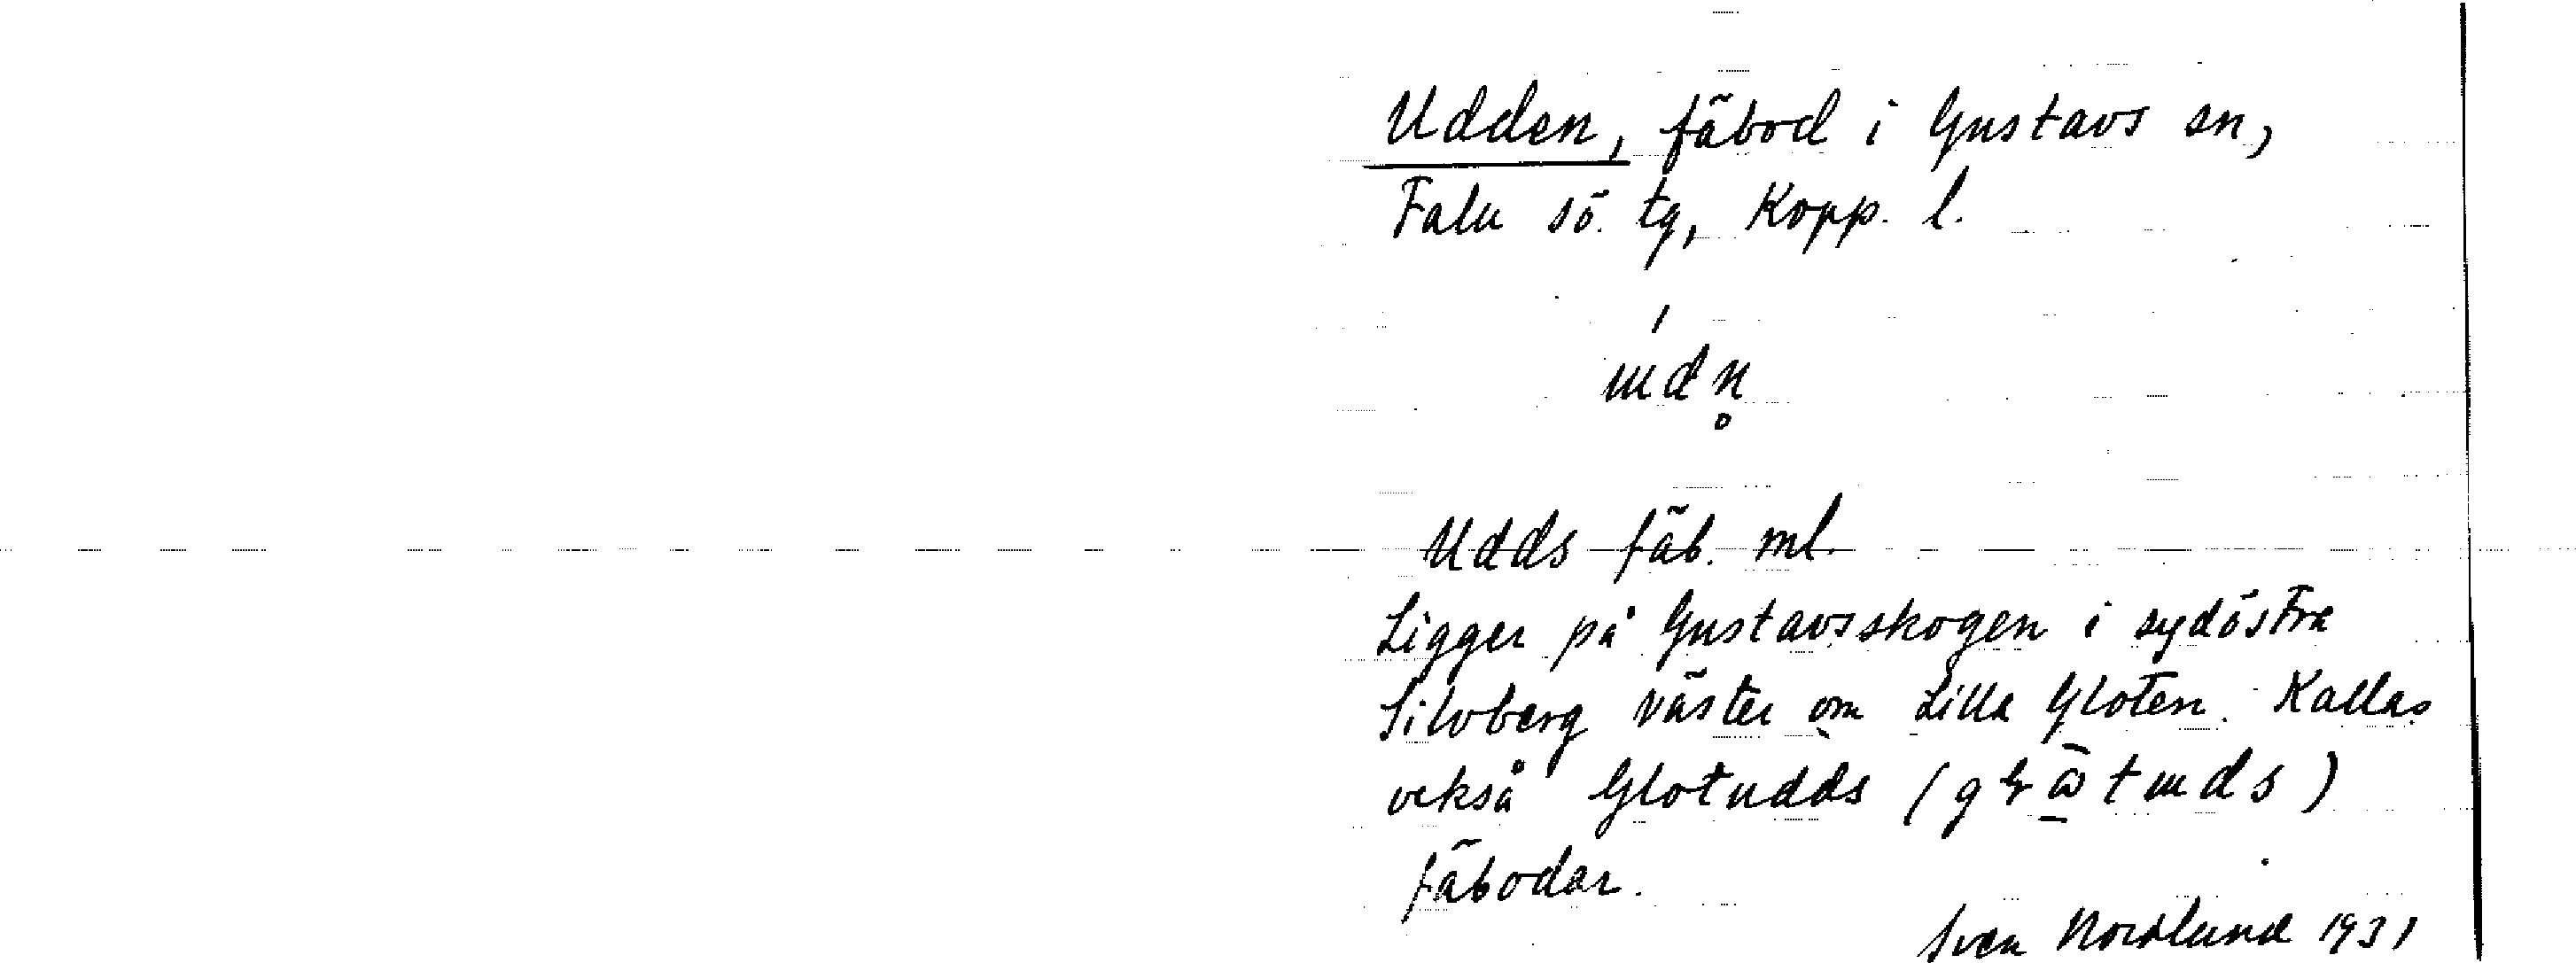 Udden, fäbod i Gustavs sn,
Falu sö. tg, Kopp. l.
ɯ́dn̥
Udds fäb. ml.
Ligger på Gustavsskogen i sydöstra
Silvberg väster om Lilla Gloten. Kallas
också Glotudds (
fäbodar.
Sven Nordlund 1931